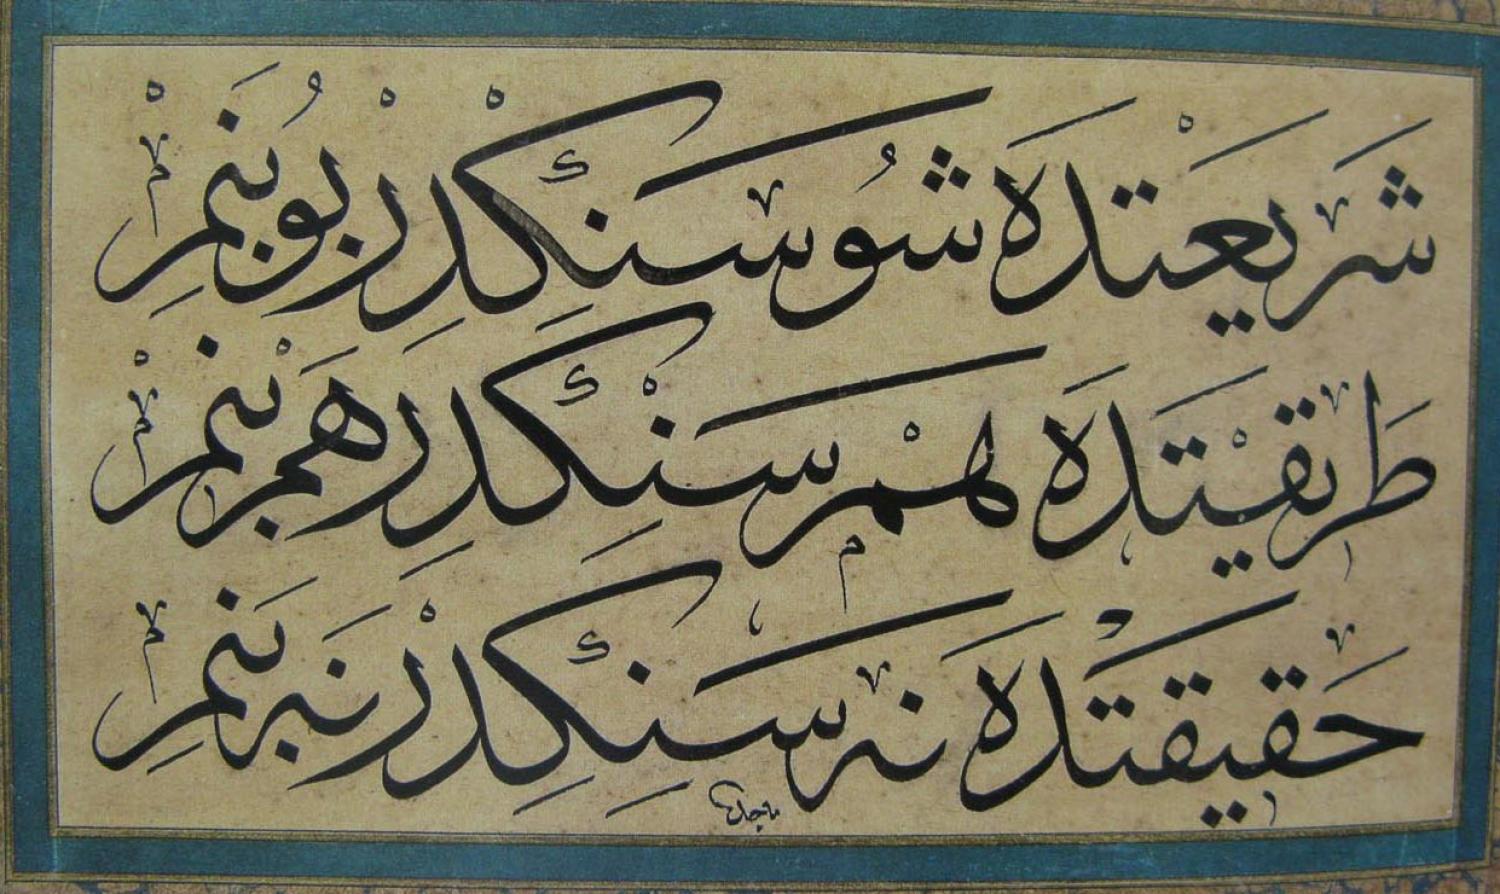 شَريعَتْدَه شُو سَنِڭْدِرْ بُو بَنِمْ
طَريقَتْدَه هَمْ سَنِڭْدِر هَمْ بَنِمْ
حَقيقَتْدَه نَه سَنِڭِدِرْ نَه بَنِمْ
ماجد